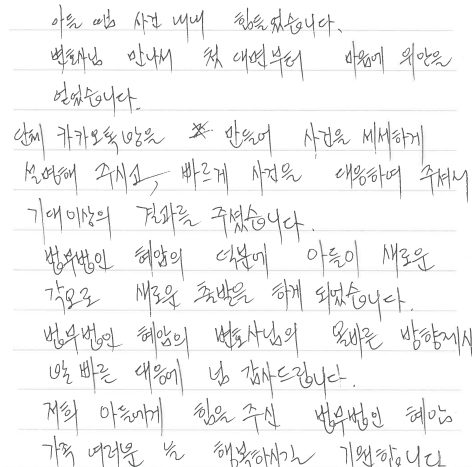 아들 땜 사건 내내 힘들었습니다.
변호사님 만나서 첫 대면부터 마음에 위안을
얻었습니다.
단체 카카오톡방을 만들어 사건을 세세하게
설명해 주시고, 빠르게 사건을 대응하여 주셔서
기대이상의 결과를 주셨습니다.
법무법인 혜암의 덕분에 아들이 새로운
각오로 새로운 출발을 하게 되었습니다.
법무법인 혜암의 변호사님의 올바른 방향제시
및 빠른 대응에 넘 감사드립니다.
저희 아들에게 힘을 주신 법무법인 혜암
가족 여러분 늘 행복하시길 기원합니다